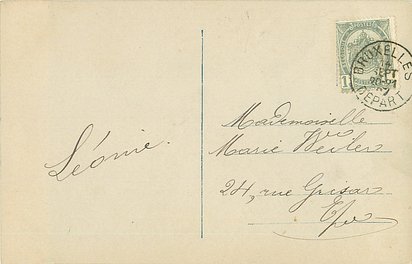 BRUXELLES
SEPT
DEPART
1
Léonie.
Mademoiselle
Marie Weiler
24, rue Grisar